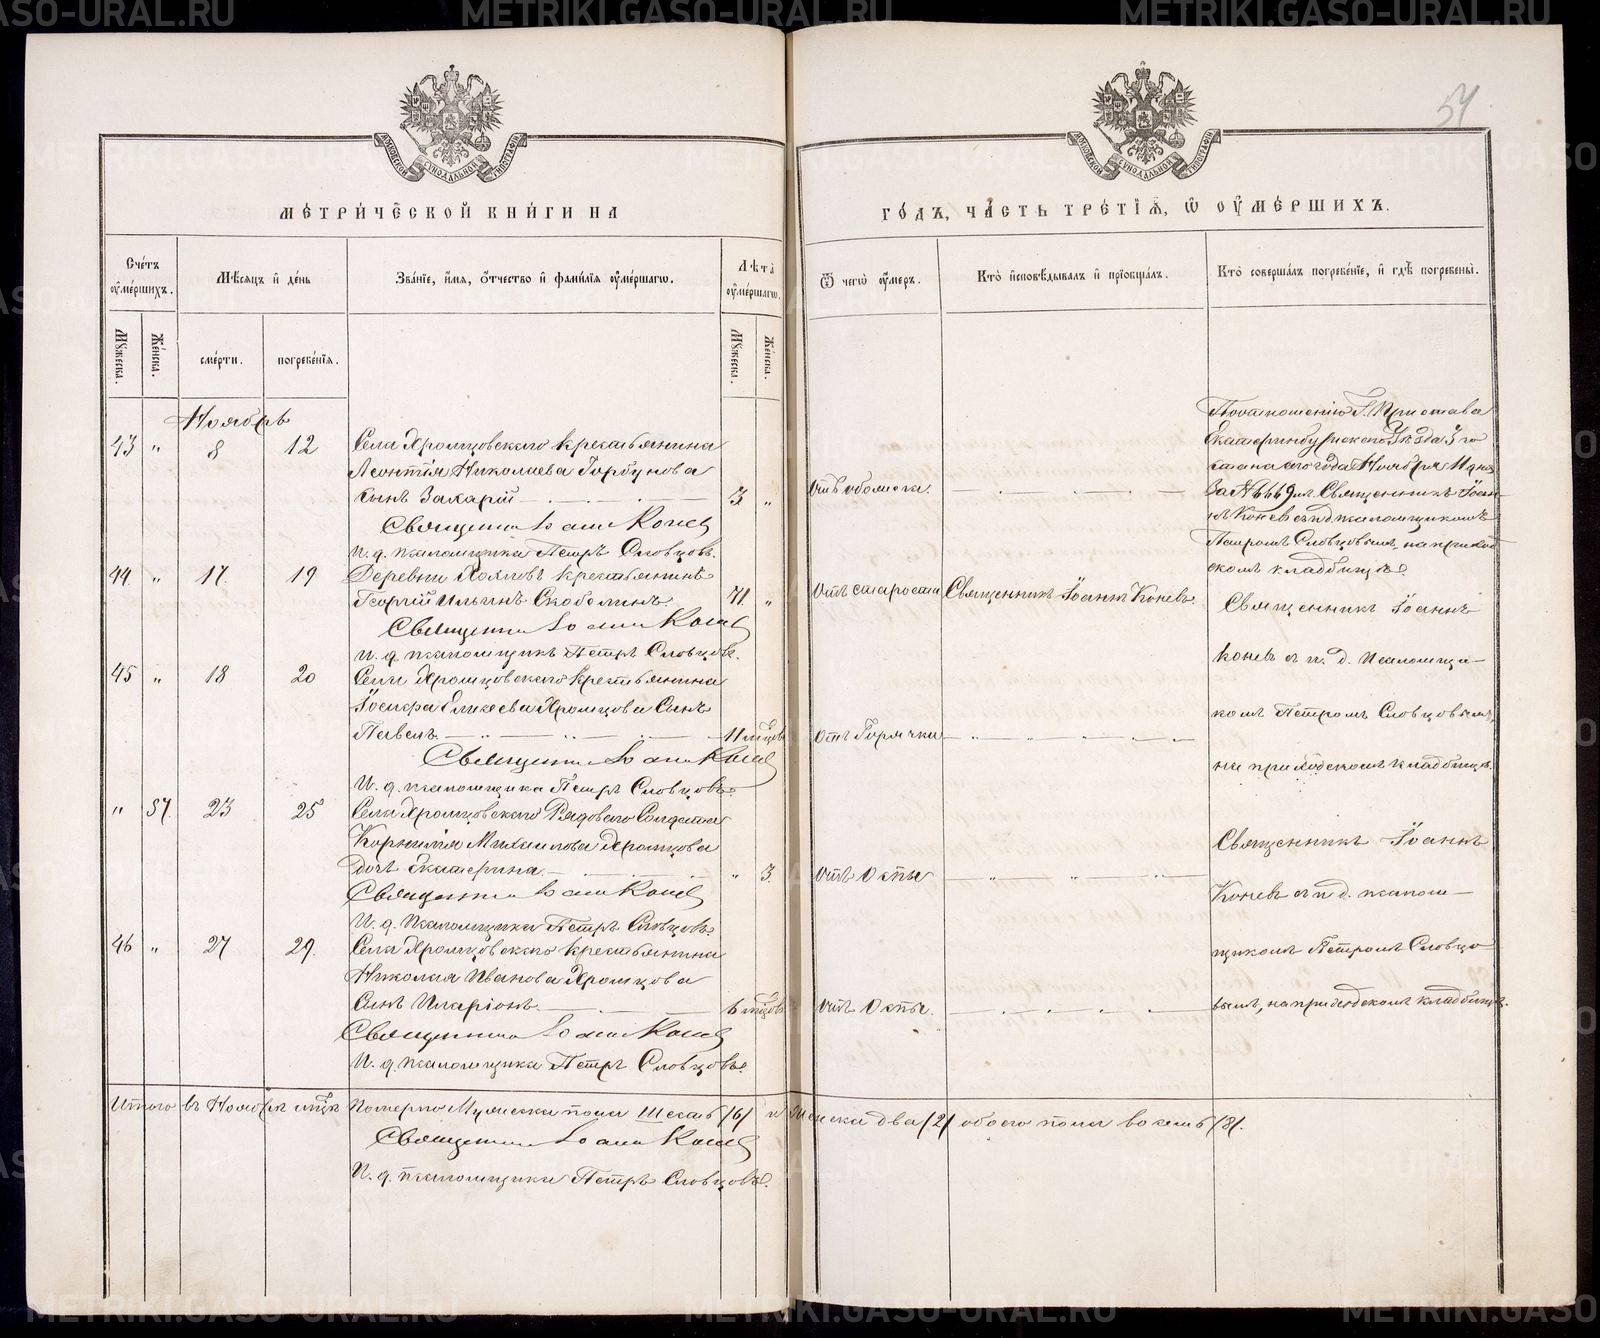 METRIKI.GASO-URAL.RU
54
МОСКОВСКОЙ СѴНОДАЛЬНОЙ ТИПОГРАФІИ
МОСКОВСКОЙ СѴНОДАЛЬНОЙ ТИПОГРАФІИ
МЕТРИЧЕСКОЙ КНИГИ НА
ГОДЪ, ЧАСТЬ ТРЕТІЯ, Ѡ ОУМЕРШИХЪ.
Счетъ оумершихъ.
Мѣсяцъ и день
Званіе, имя, отчество и фамилія оумершагѡ.
Лѣта оумершагѡ.
Ѿ чегѡ оумеръ.
Кто исповѣдывалъ и пріобщалъ.
Кто совершалъ погребеніе, и гдѣ погребены.
Мужеска.
Женска.
смерти.
погребенія.
Мужеска.
Женска.
Ноябрь
43 " 8 12 Села Хромцовскаго крестьянина
Леонтія Николаева Горбунова
сынъ Захарій 3 "
Священникъ Іоаннъ Коневъ
И. д. псаломщика Петръ Словцовъ.
44 " 17. 19 Деревни крестьянинъ
Георгій Ильинъ Скоболинъ. 71. " Отъ старости Священникъ Іоаннъ Коневъ.
Священникъ Іоаннъ Коневъ
И. д. псаломщикъ Петръ Словцовъ.
45 " 18 20 Села Хромцовскаго крестьянина
Іосифа Еликеева Хромцова сынъ
Павелъ. 11 мѣсцовъ Отъ Горячки
Священникъ Іоаннъ Коневъ
И. д. псаломщика Петръ Словцовъ.
" 37. 23 25 Села Хромцовскаго Рядоваго Солдата
Корнилія Михаилова Хромцова
дочь Екатерина " 3. Отъ Оспы
Священникъ Іоаннъ Коневъ
И. д. псаломщика Петръ Словцовъ.
46 " 27 29. Села Хромцовскаго крестьянина
Николая Иванова Хромцова
сынъ Иларіонъ. 6 мѣсцовъ Отъ Оспы.
Священникъ Іоаннъ Коневъ
И. д. псаломщика Петръ Словцовъ.
По отношенію Г. Пристава
Екатеринбургскаго Уѣзда 3 го
стана сего года Ноября 11 дня
За № 6669 мъ Священникъ Іоан-
нъ Коневъ съ и д псаломщикомъ
Петромъ Словцовымъ, на приход-
скомъ кладбищѣ.
Священникъ Іоаннъ
Коневъ съ и. д. Псаломщи-
комъ Петромъ Словцовымъ,
на приходскомъ кладбищѣ.
Священникъ Іоаннъ
Коневъ съ и д. псалом-
щикомъ Петромъ Словцо
вымъ, на приходскомъ кладбищѣ.
Итого въ Ноябрѣ мѣсцѣ Померло Мужеска пола Шесть /6/ и женска два /2/ обоего пола восемь /8/.
Священникъ Іоаннъ Коневъ
И. д. псаломщика Петръ Словцовъ.